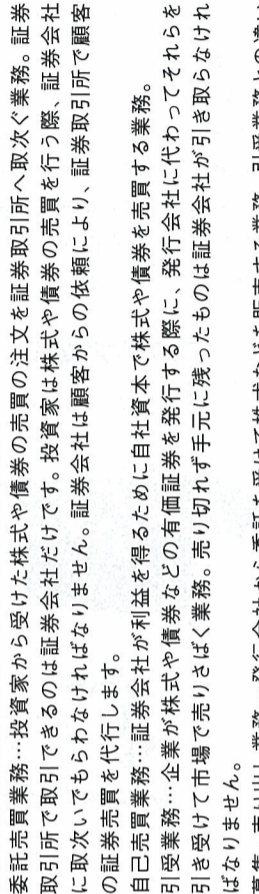 委託売買業務…投資家から受けた株式や債券の売買の注文を証券取引所へ取次ぐ業務。証券
取引所で取引できるのは証券会社だけです。投資家は株式や債券の売買を行う際、証券会社
に取次いでもらわなければなりません。証券会社は顧客からの依頼により、証券取引所で顧客
の証券売買を代行します。
自己売買業務…証券会社が利益を得るために自社資本で株式や債券を売買する業務。
引受業務…企業が株式や債券などの有価証券を発行する際に、発行会社に代わってそれらを
引き受けて市場で売りさばく業務。売り切れず手元に残ったものは証券会社が引き取らなけれ
ばなりません。
募集・売り出し業務…発行会社から委託を受けて株式などを販売する業務。引受業務との違い